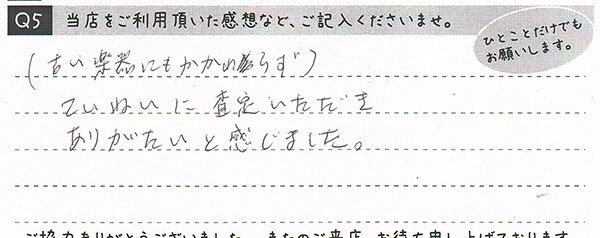 Q5 当店をご利用頂いた感想など、ご記入くださいませ。
ひとことだけでも
お願いします。
(古い楽器にもかかわらず)
ていねいに査定いただき
ありがたいと感じました。
ご協力ありがとうございました。またのご来店、お待ち申し上げております。